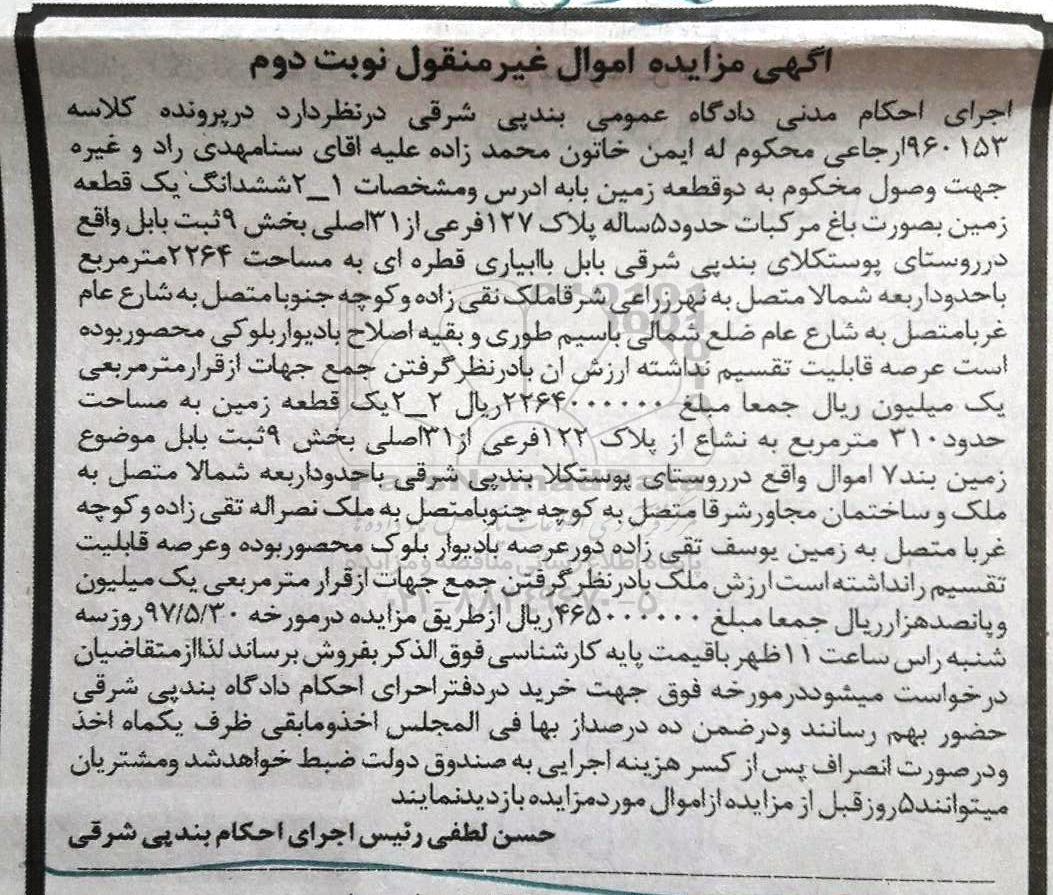 اگهی مزایده اموال غیرمنقول نوبت دوم
اجرای احکام مدنی دادگاه عمومی بندپی شرقی درنظردارد درپرونده کلاسه
۹۶۰۱۵۳ارجاعی محکوم له ایمن خاتون محمد زاده علیه اقای سنامهدی راد و غیره
جهت وصول مخکوم به دوقطعه زمین بابه ادرس ومشخصات ۱_۲ششدانگ یک قطعه
زمین بصورت باغ مرکبات حدود۵ساله پلاک ۱۲۷فرعی از۳۱اصلی بخش ۹ثبت بابل واقع
درروستای پوستکلای بندپی شرقی بابل باابیاری قطره ای به مساحت ۲۲۶۴مترمربع
باحدوداربعه شمالا متصل به نهرزراعی شرقاملک نقی زاده وکوچه جنوبا متصل به شارع عام
غربامتصل به شارع عام ضلع شمالی باسیم طوری و بقیه اصلاح بادیواربلوکی محصوربوده
است عرصه قابلیت تقسیم نداشته ارزش ان بادرنظرگرفتن جمع جهات ازقرارمترمربعی
یک میلیون ریال جمعا مبلغ ۲۲۶۴۰۰۰۰۰۰ریال ۲_۲یک قطعه زمین به مساحت
حدود۳۱۰ مترمربع به نشاع از پلاک ۱۲۲فرعی از۳۱اصلی بخش ۹ثبت بابل موضوع
زمین بند۷ اموال واقع درروستای پوستکلا بندپی شرقی باحدوداربعه شمالا متصل به
ملک و ساختمان مجاورشرقا متصل به کوچه جنوبامتصل به ملک نصراله تقی زاده وکوچه
غربا متصل به زمین یوسف تقی زاده دورعرصه بادیوار بلوک محصوربوده وعرصه قابلیت
تقسیم رانداشته است ارزش ملک بادرنظرگرفتن جمع جهات ازقرار مترمربعی یک میلیون
وپانصدهزارریال جمعا مبلغ ۴۶۵۰۰۰۰۰۰ریال ازطریق مزایده درمورخه ۹۷/۵/۳۰روزسه
شنبه راس ساعت ۱۱ظهرباقیمت پایه کارشناسی فوق الذکر بفروش برساند لذاازمتقاضیان
درخواست میشوددرمورخه فوق جهت خرید دردفتراحرای احکام دادگاه بندپی شرقی
حضور بهم رسانند ودرضمن ده درصداز بها فی المجلس اخذومابقی ظرف یکماه اخذ
ودرصورت انصراف پس از کسر هزینه اجرایی به صندوق دولت ضبط خواهدشد ومشتریان
میتوانند۵روزقبل از مزایده ازاموال موردمزایده بازدیدنمایند
حسن لطفی رئیس اجرای احکام بندپی شرقی